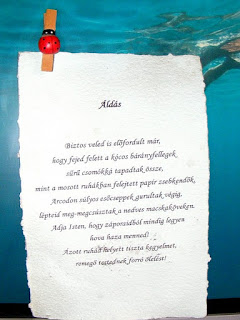 Áldás
Biztos veled is előfordult már,
hogy fejed felett a kócos bárányfellegek
sűrű csomókká tapadtak össze,
mint a mosott ruhákban felejtett papír zsebkendők,
Arcodon súlyos esőcseppek gurultak végig,
lépteid meg-megcsúsztak a nedves macskaköveken.
Adja Isten, hogy záporaidból mindig legyen
hova haza menned!
Ázott ruháid helyett tiszta kegyelmet,
remegő testednek forró ölelést!